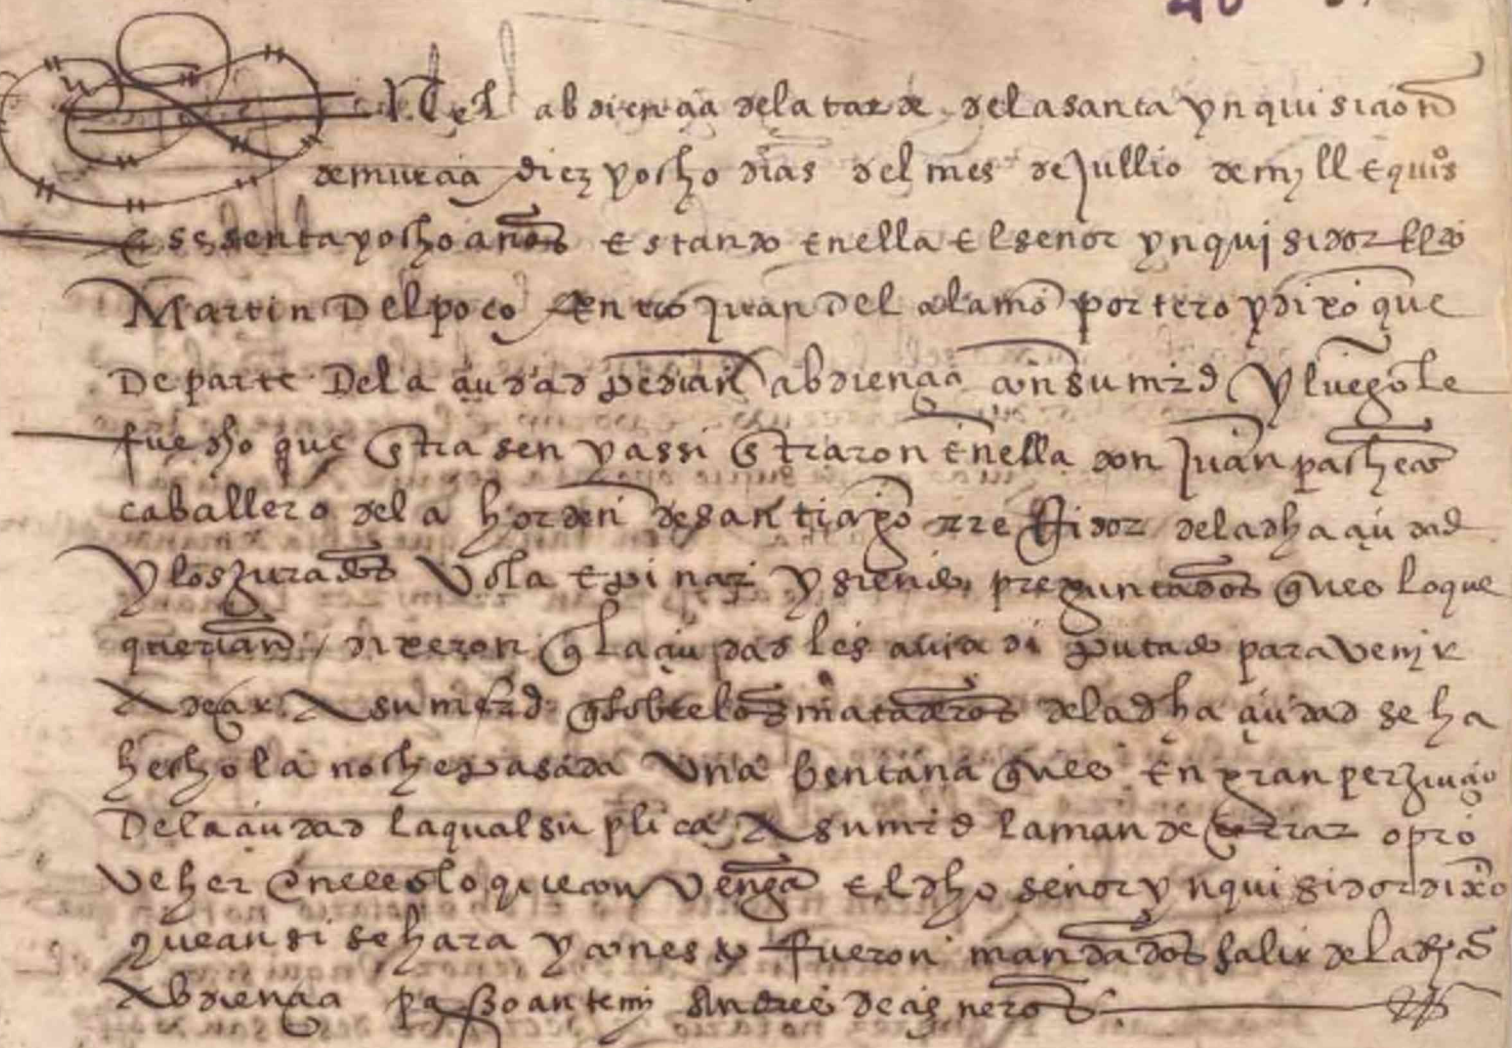 En el abdiençia de la tarde de la santa ynquisiçion
de murçia diez y ocho dias del mes de jullio de myll e quis
e sesenta y ocho años estando en ella el señor ynquisidor llcdo
Martin Del poço Entro Juan del alamo portero y dixo que
De parte De la çiudad pedian abdiençia con su mrd y luego le
fue dho que entrasen y assi entraron en ella don Juan pacheco
caballero de la horden de santiago rregidor de la dha çiudad
y los jurados Vola e pinar y siendo preguntados que es lo que
querian / dixeron q la çiudad les avia diputado para venir
A deçir A su mrd q sobre los mataderos de la dha çiudad se ha
hecho la noche pasada Una bentana que es En gran perjuiçio
De la çiudad la qual suplica A su mrd la mande çerrar o pro
veher en ello lo que convenga e el dho señor ynquisidor dixo
que ansi se hara y con esto fueron mandados salir de la dha
Abdiençia passo ante mi Andres de çisneros